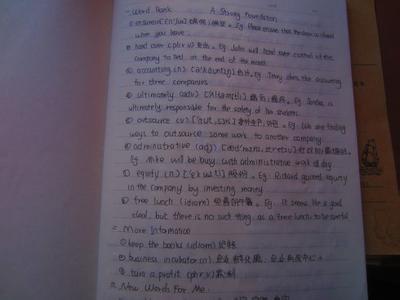 一. Word Bank A Strong Foundation
① ensure (v.) 确保 。Eg. Please ensure that the door is closed
when you leave.
② hand over (phr.v) 。Eg. John will hand over control of the
company to Ted at the end of the month.
③ accounting (n.) 会计。Eg. Jerry does the accounting
for three companies.
④ ultimately (adv.) 最后; 。Eg. is
ultimately responsible for the safety of
⑤ outsource (v.) 外包。Eg. We are finding
ways to outsource some work to another company.
⑥ administrative (adj.)
Eg. Mike will be busy with administrative work all day.
⑦ equity (n.) [ˈɛkwətɪ] 股份。Eg. Richard gained equity
in the company by investing money.
⑧ free lunch (idiom) 免费的午餐。Eg. It seems like a good
deal, but there is no such thing as a free lunch so be careful.
二. More Information
① keep the books (idiom) 记帐
② business incubator (n.) 企业孵化器,
③ turn a profit (phr.v) 获利
三. New Words For Me: